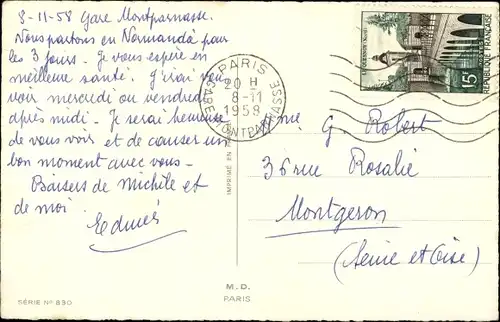 8-11-58 Gare Montparnasse.
Nous partons en Normandie pour
les 3 jours. Je vous espère en
meilleure santé. J'irai vous
voir mercredi ou vendredi
après midi. Je serai heureuse
de vous voir et de causer un
bon moment avec vous-
Baisers de Michèle et
de moi
PARIS
20 H
8-11
1958
GARE MONTPARNASSE
15F
REPUBLIQUE FRANÇAISE
Mme G. Robert
36 rue Rosalie
Montgeron
(Seine et Oise)
IMPRIMÉ EN
M.D.
PARIS
SÉRIE No 890